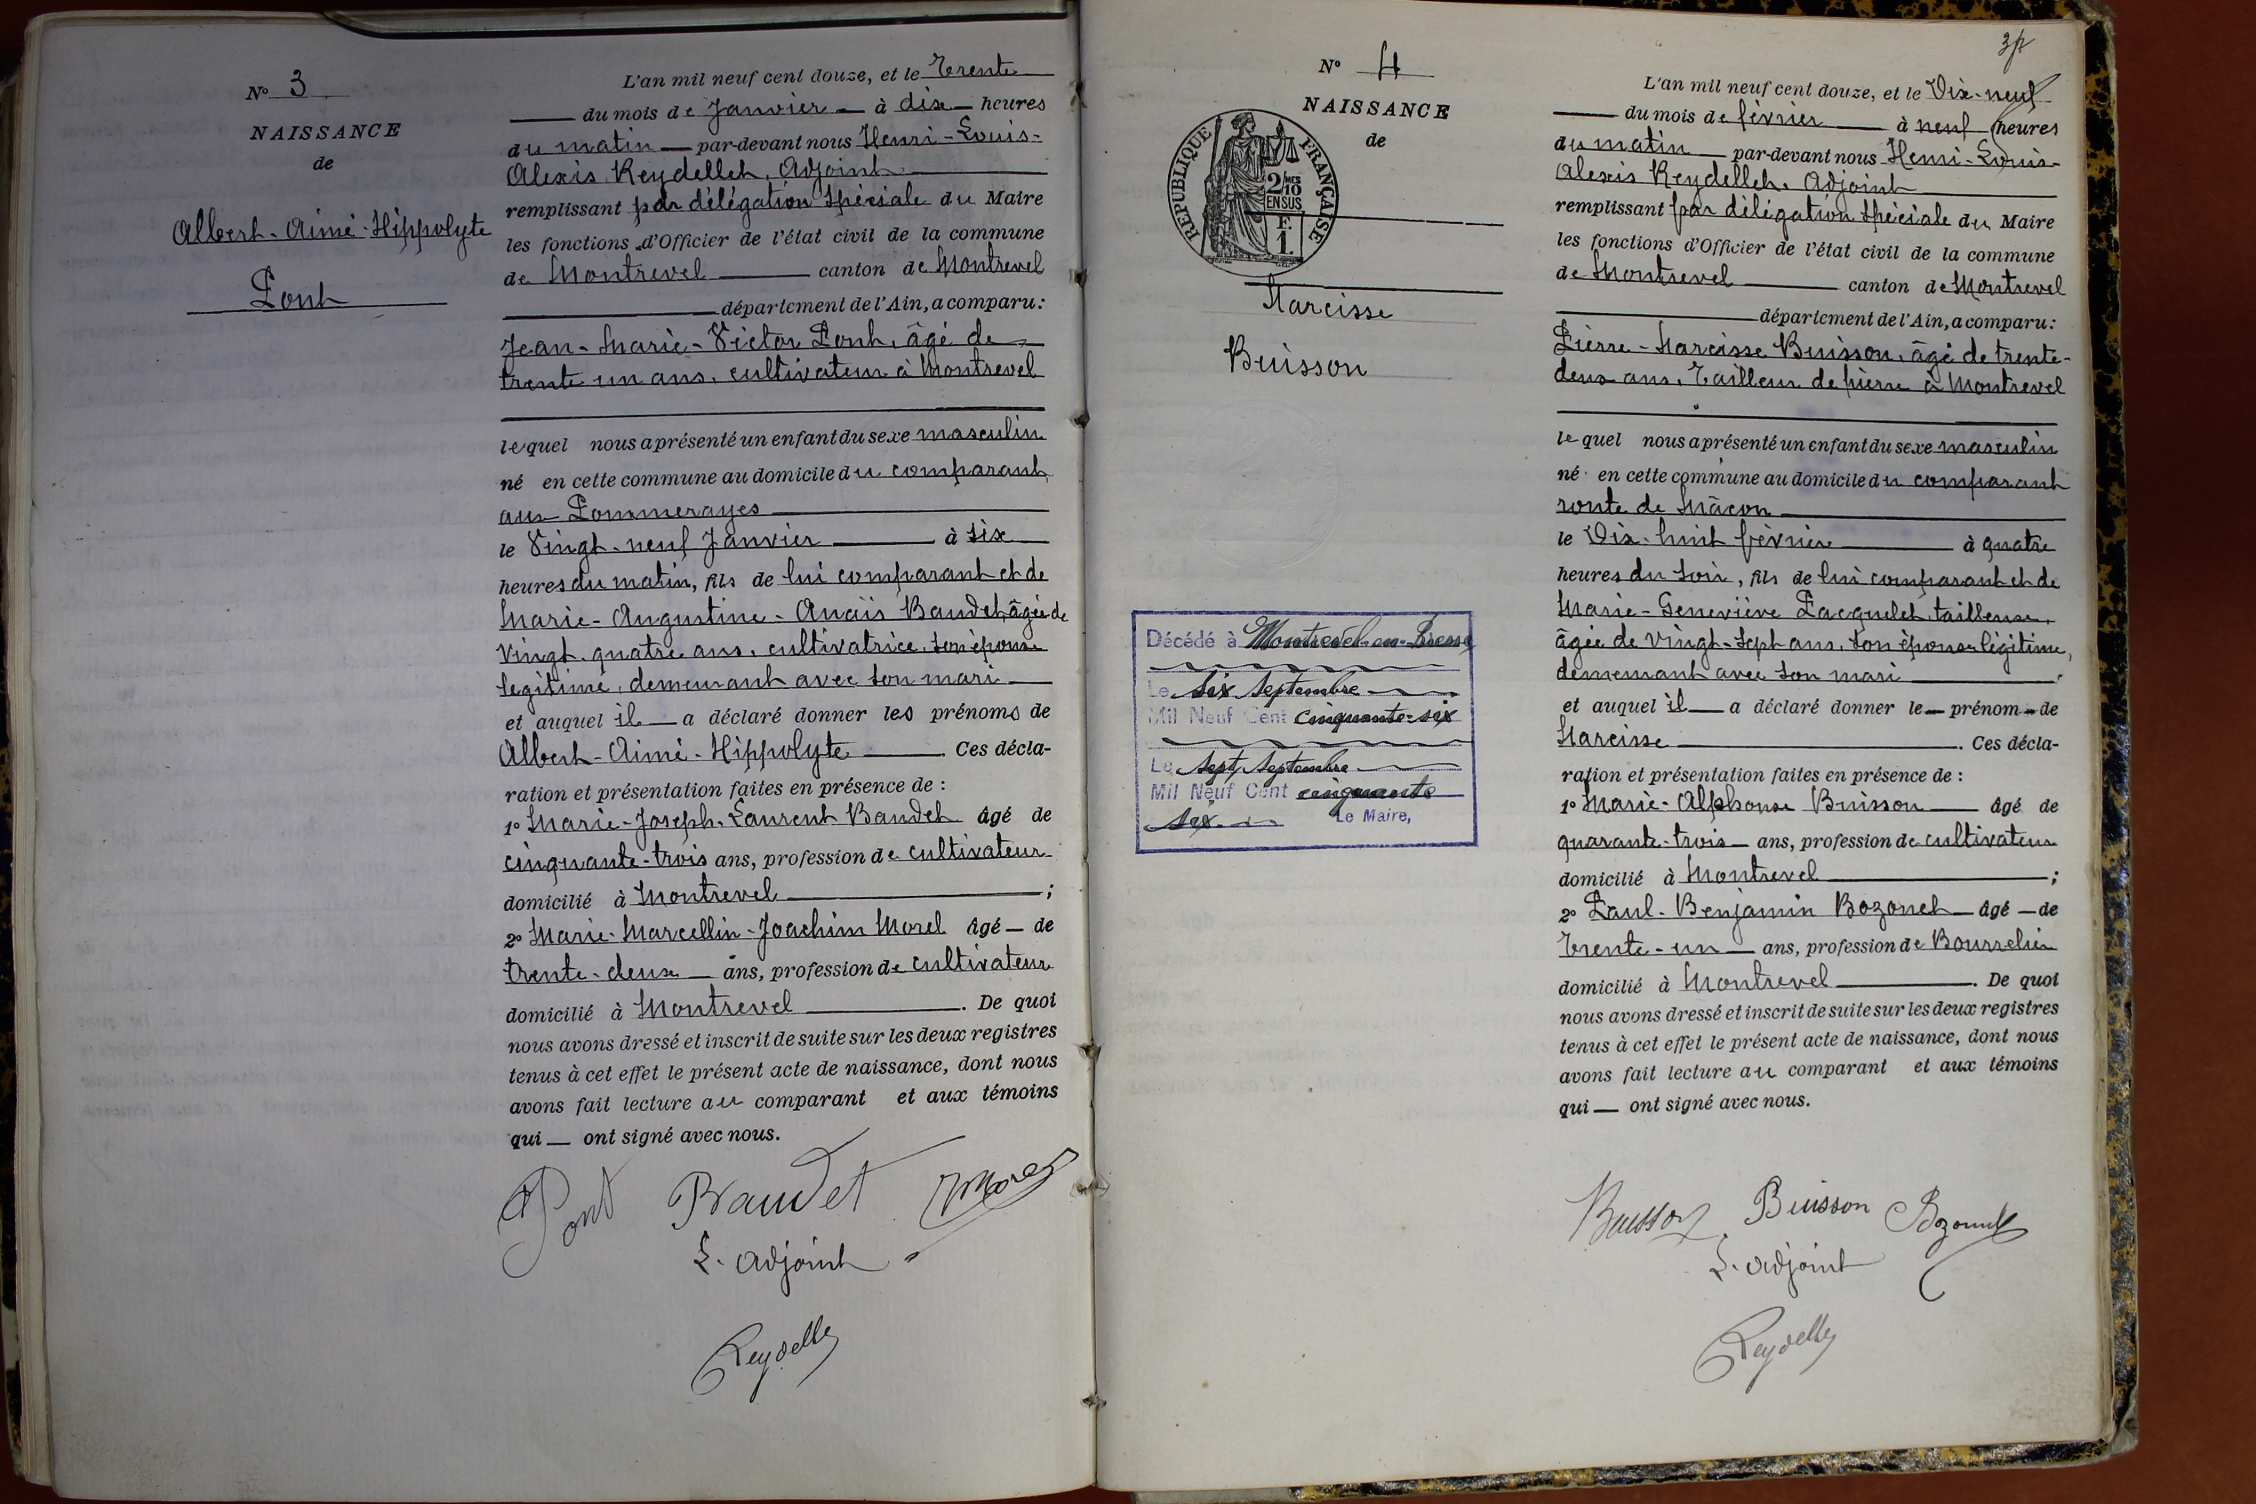 N° 3
NAISSANCE
de
Albert-Aimé-Hippolyte
Pont
L'an mil neuf cent douze, et le Trente
du mois de Janvier à dix heures
du matin par-devant nous Henri-Louis-
Alexis Reydellet, Adjoint
remplissant par délégation spéciale du Maire
les fonctions d'Officier de l'état civil de la commune
de Montrevel canton de Montrevel
département de l'Ain, a comparu :
Jean-Marie-Victor Pont, âgé de
trente un ans, cultivateur à Montrevel
lequel nous a présenté un enfant du sexe masculin
né en cette commune au domicile du comparant
aux Pommerayes
le Vingt-neuf Janvier à six
heures du matin, fils de lui comparant et de
Marie-Augustine-Anaïs Baudet, âgée de
Vingt-quatre ans, cultivatrice, son épouse
légitime, demeurant avec son mari
et auquel il a déclaré donner les prénoms de
Albert-Aimé-Hippolyte Ces décla-
ration et présentation faites en présence de :
1° Marie-Joseph-Laurent Baudet âgé de
cinquante-trois ans, profession de cultivateur
domicilié à Montrevel ;
2° Marie-Marcellin-Joachim Morel âgé de
trente-deux ans, profession de cultivateur
domicilié à Montrevel . De quoi
nous avons dressé et inscrit de suite sur les deux registres
tenus à cet effet le présent acte de naissance, dont nous
avons fait lecture au comparant et aux témoins
qui ont signé avec nous.
Pont Baudet Morel
L'adjoint
Reydellet
N° 4
NAISSANCE
de
RÉPUBLIQUE FRANÇAISE
2/10 MES
EN SUS
F.
1.
Narcisse
Buisson
Décédé à Montrevel-en-Bresse
Le six septembre
Mil Neuf Cent cinquante-six
Le sept septembre
Mil Neuf Cent cinquante
six Le Maire,
L'an mil neuf cent douze, et le Dix-neuf
du mois de février à neuf heures
du matin par-devant nous Henri-Louis-
Alexis Reydellet, Adjoint
remplissant par délégation spéciale du Maire
les fonctions d'Officier de l'état civil de la commune
de Montrevel canton de Montrevel
département de l'Ain, a comparu :
Pierre-Narcisse Buisson, âgé de trente-
deux ans, Tailleur de pierre à Montrevel
lequel nous a présenté un enfant du sexe masculin
né en cette commune au domicile du comparant
route de Mâcon
le Dix-huit février à quatre
heures du soir, fils de lui comparant et de
Marie-Geneviève Pacquelet, tailleuse,
âgée de vingt-sept ans, son épouse légitime,
demeurant avec son mari
et auquel il a déclaré donner le prénom de
Narcisse . Ces décla-
ration et présentation faites en présence de :
1° Marie-Alphonse Buisson âgé de
quarante-trois ans, profession de cultivateur
domicilié à Montrevel ;
2° Paul-Benjamin Bozonet âgé de
Trente-un ans, profession de Bourrelier
domicilié à Montrevel . De quoi
nous avons dressé et inscrit de suite sur les deux registres
tenus à cet effet le présent acte de naissance, dont nous
avons fait lecture au comparant et aux témoins
qui ont signé avec nous.
Buisson Buisson Bozonet
L'adjoint
Reydellet